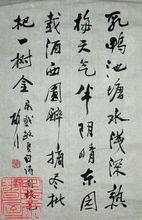 乳鸭池塘水浅深熟
梅天气半阴晴东园
载酒西园醉摘尽枇
把一树金